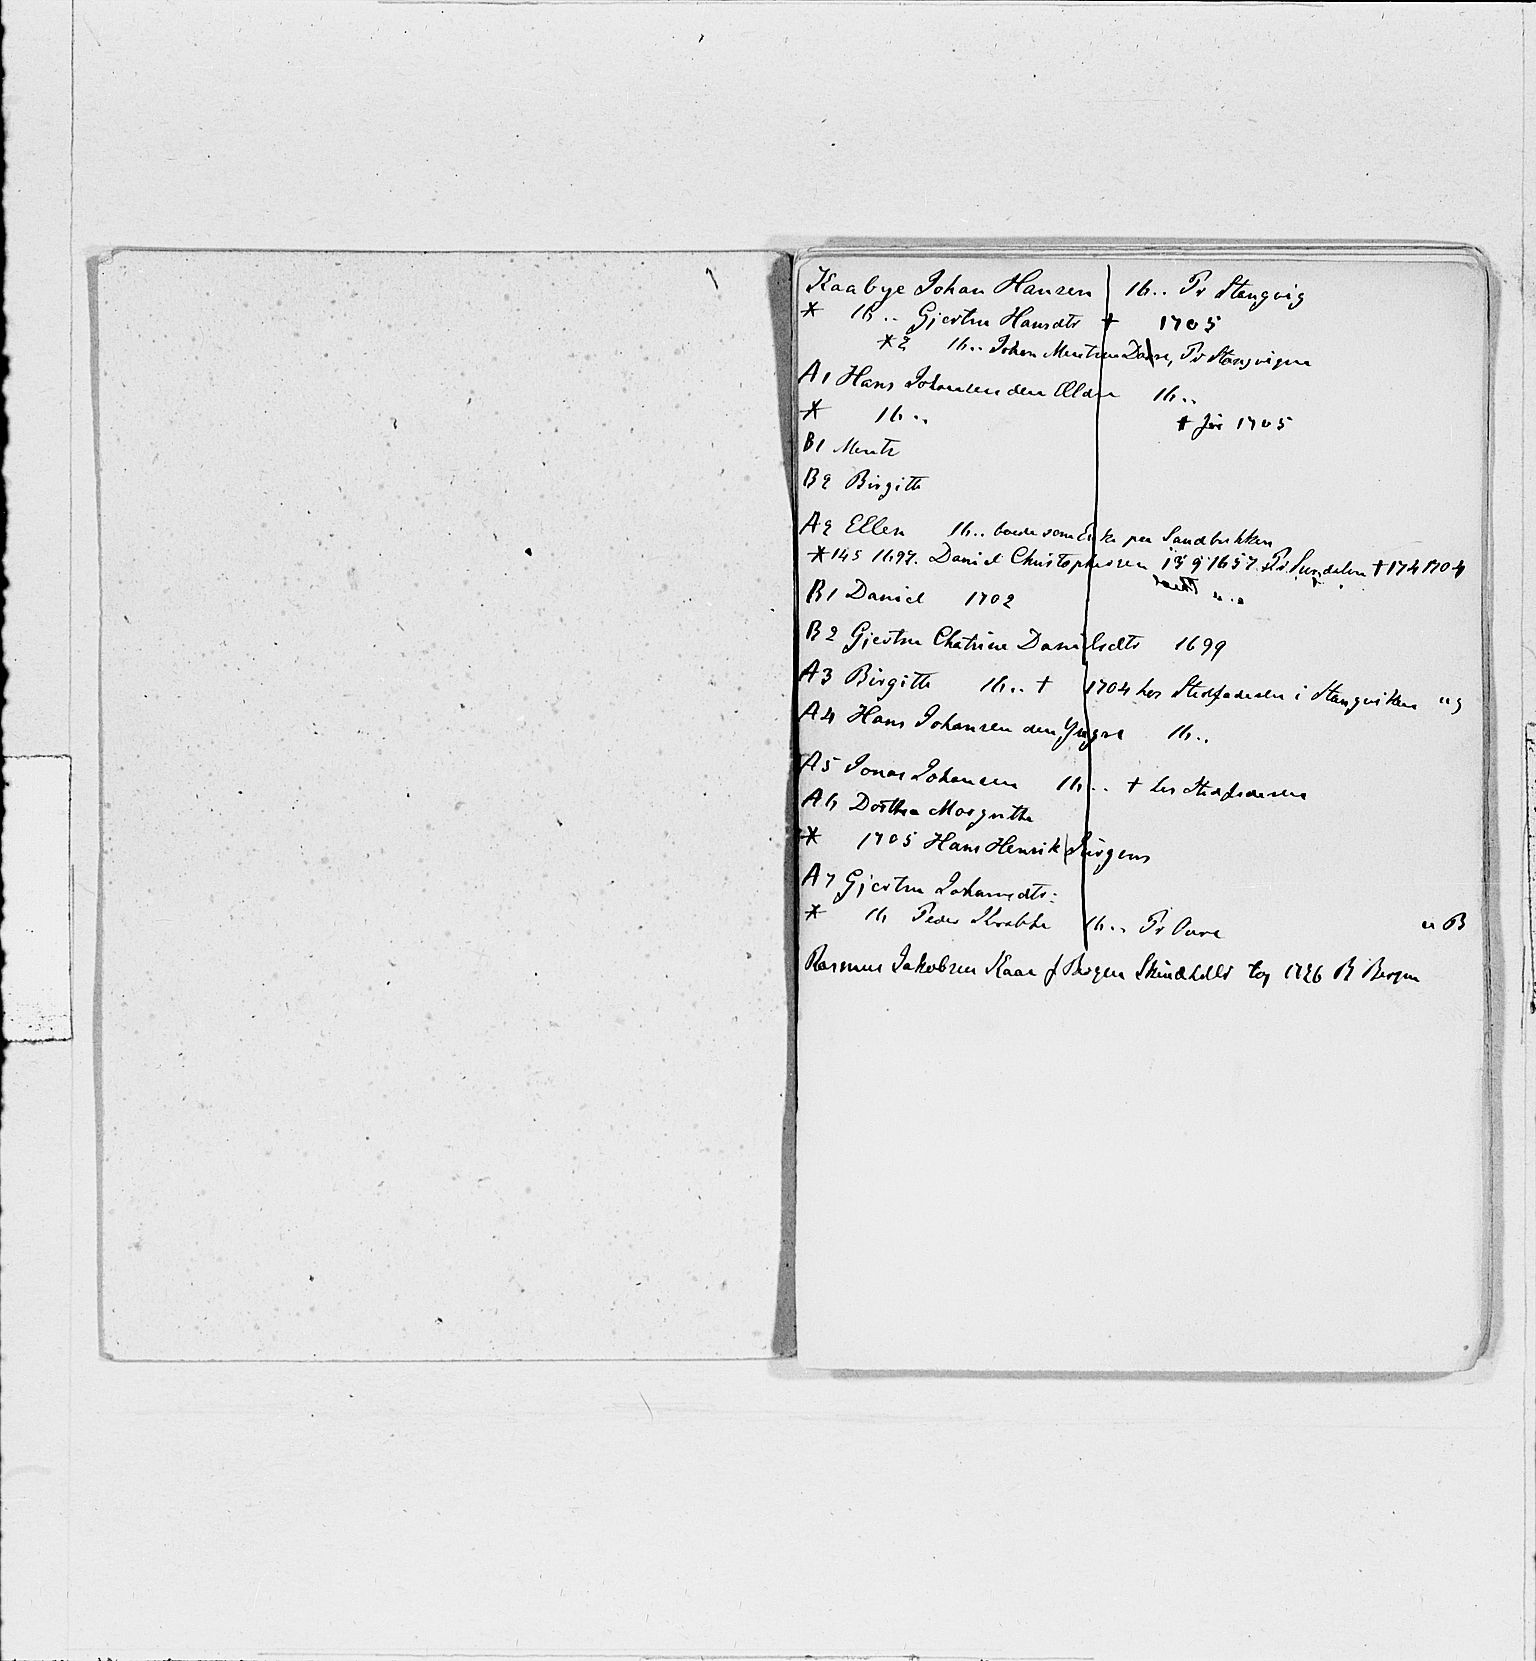 Kaabye Johan Hansen 16.. Pr Stangvig
* 16.. Gjertru Hansdtr † 1705
*2 16.. Johan Mentsen Dasse, Pr Stangvigen
A1 Hans Johansen den Ældre 16..
* 16.. † før 1705
B1 Mentz
B2 Birgitte
A2 Ellen 16.. boede som Enke paa Sandbakken
*145 1697. Daniel Christophersen 1657 Pr Sundalen † 174 1704
B1 Daniel 1702
B2 Gjertru Chatrine Danielsdtr 1699
A3 Birgitte 16.. † 1704 hos Stedfaderen i Stangviken
A4 Hans Johansen den Yngre 16..
A5 Jonas Johansen 16.. † hos Stedfaderen
A6 Dorthea Margrethe
* 1705 Hans Henrik Jürgens
A7 Gjertru Johansdtr:
* 16 Peder Krabbe 16.. Pr Oure B
Rasmus Jakobsen Kaae f Bergen tog 1726 B Bergen